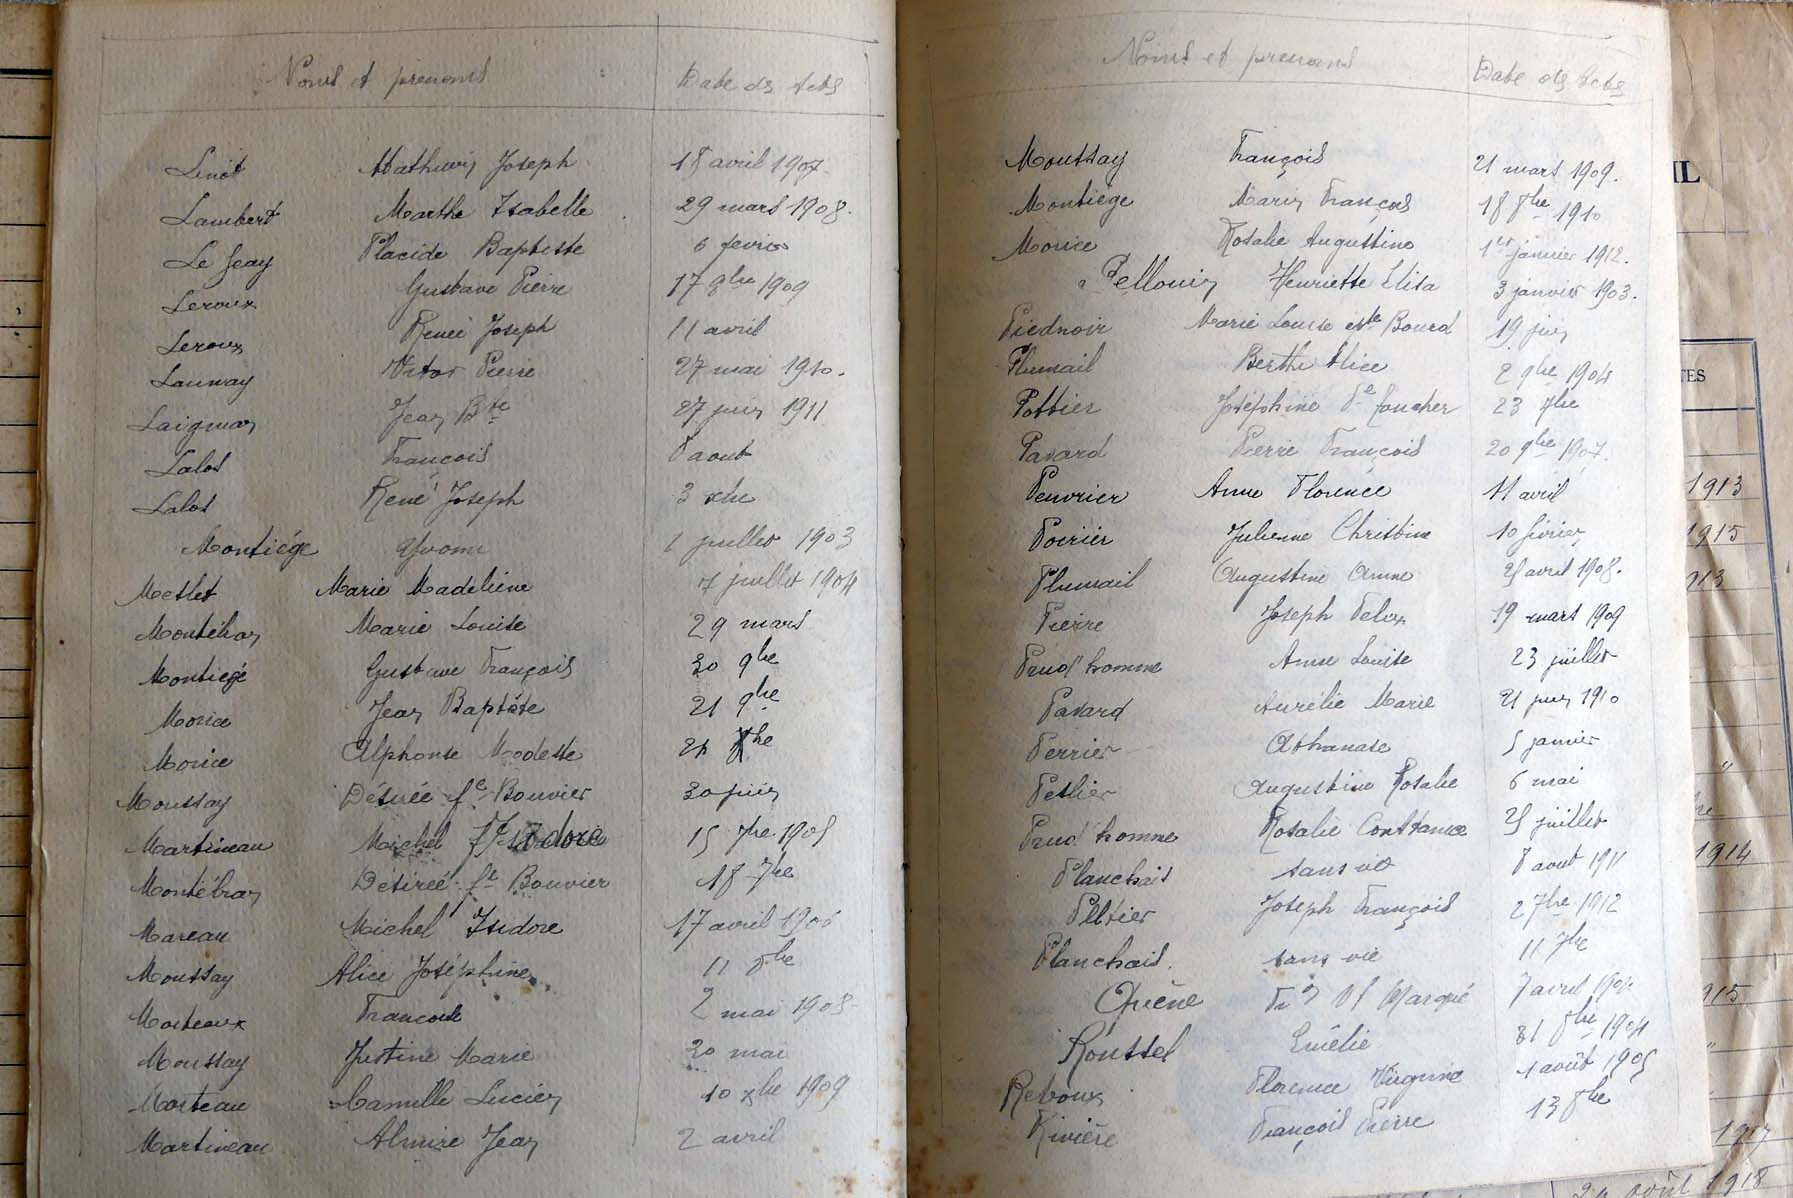 Noms et prenoms Date des Actes
Linot Mathurin Joseph 18 avril 1907.
Lambert Marthe Isabelle 29 mars 1908.
Le Geay Placide Baptiste 6 fevrier
Leroux Gustave Pierre 17 9bre 1909
Leroux René Joseph 11 avril
Launay Victor Pierre 27 mai 1910.
Laigman Jean Bte 27 juin 1911
Lalot François 8 aout
Lalot René Joseph 3 xbre
Montiége Yvonne 1 juillet 1903
Meslet Marie Madeleine 7 juillet 1904
Montébran Marie Louise 29 mars
Montiegé Gustave François 30 9bre
Morice Jean Baptiste 21 9bre
Morice Alphonse Modeste
Moussay Désirée fe Bouvier 30 juin
Martineau Michel Isidore 15 7bre 1905
Montébran Désirée fe Bouvier 18 7bre
Mareau Michel Isidore 17 avril 1906
Moussay Alice Joséphine 11 8bre
Morteaux 2 mai 1908
Moussay Justine Marie 20 mai
Morteau Camille Lucien 10 xbre 1909
Martineau Almire Jean 2 avril
Noms et prenoms Date des Actes
Moussay François 21 mars 1909.
Montiége Marin François 18 8bre 1910
Morice Rosalie Augustine 1er janvier 1912.
Pellouin Henriette Elisa 3 janvier 1903.
Piednoir Marie Louise Bourd 19 juin
Plumail Berthe Alice 2 9bre 1904
Pottier Joséphine Foucher 23 7bre
Pavard Pierre François 20 9bre 1907.
Peuvrier Anne Florence 11 avril
Poirier Julienne Christine 10 février
Plumail Augustine Anne 25 avril 1908.
Pierre Joseph 19 mars 1909
Prud'homme Anne Louise 23 juillet
Pavard Aurélie Marie 21 juin 1910
Perrier Athanase 5 janvier
Peslier Augustine Rosalie 6 mai
Prud'homme Rosalie Constance 25 juillet
Planchais sans vie 8 aout 1911
Peltier Joseph François 2 7bre 1912
Planchais. sans vie 11 7bre
Quène Marqué 7 avril
Roussel Emélie 31 8bre 1904
Reboux Florence Virginie 1 août 1905
Rivière François Pierre 13 8bre
IL
TES
1913
1915
1913
1914
1915
1917
août 1918